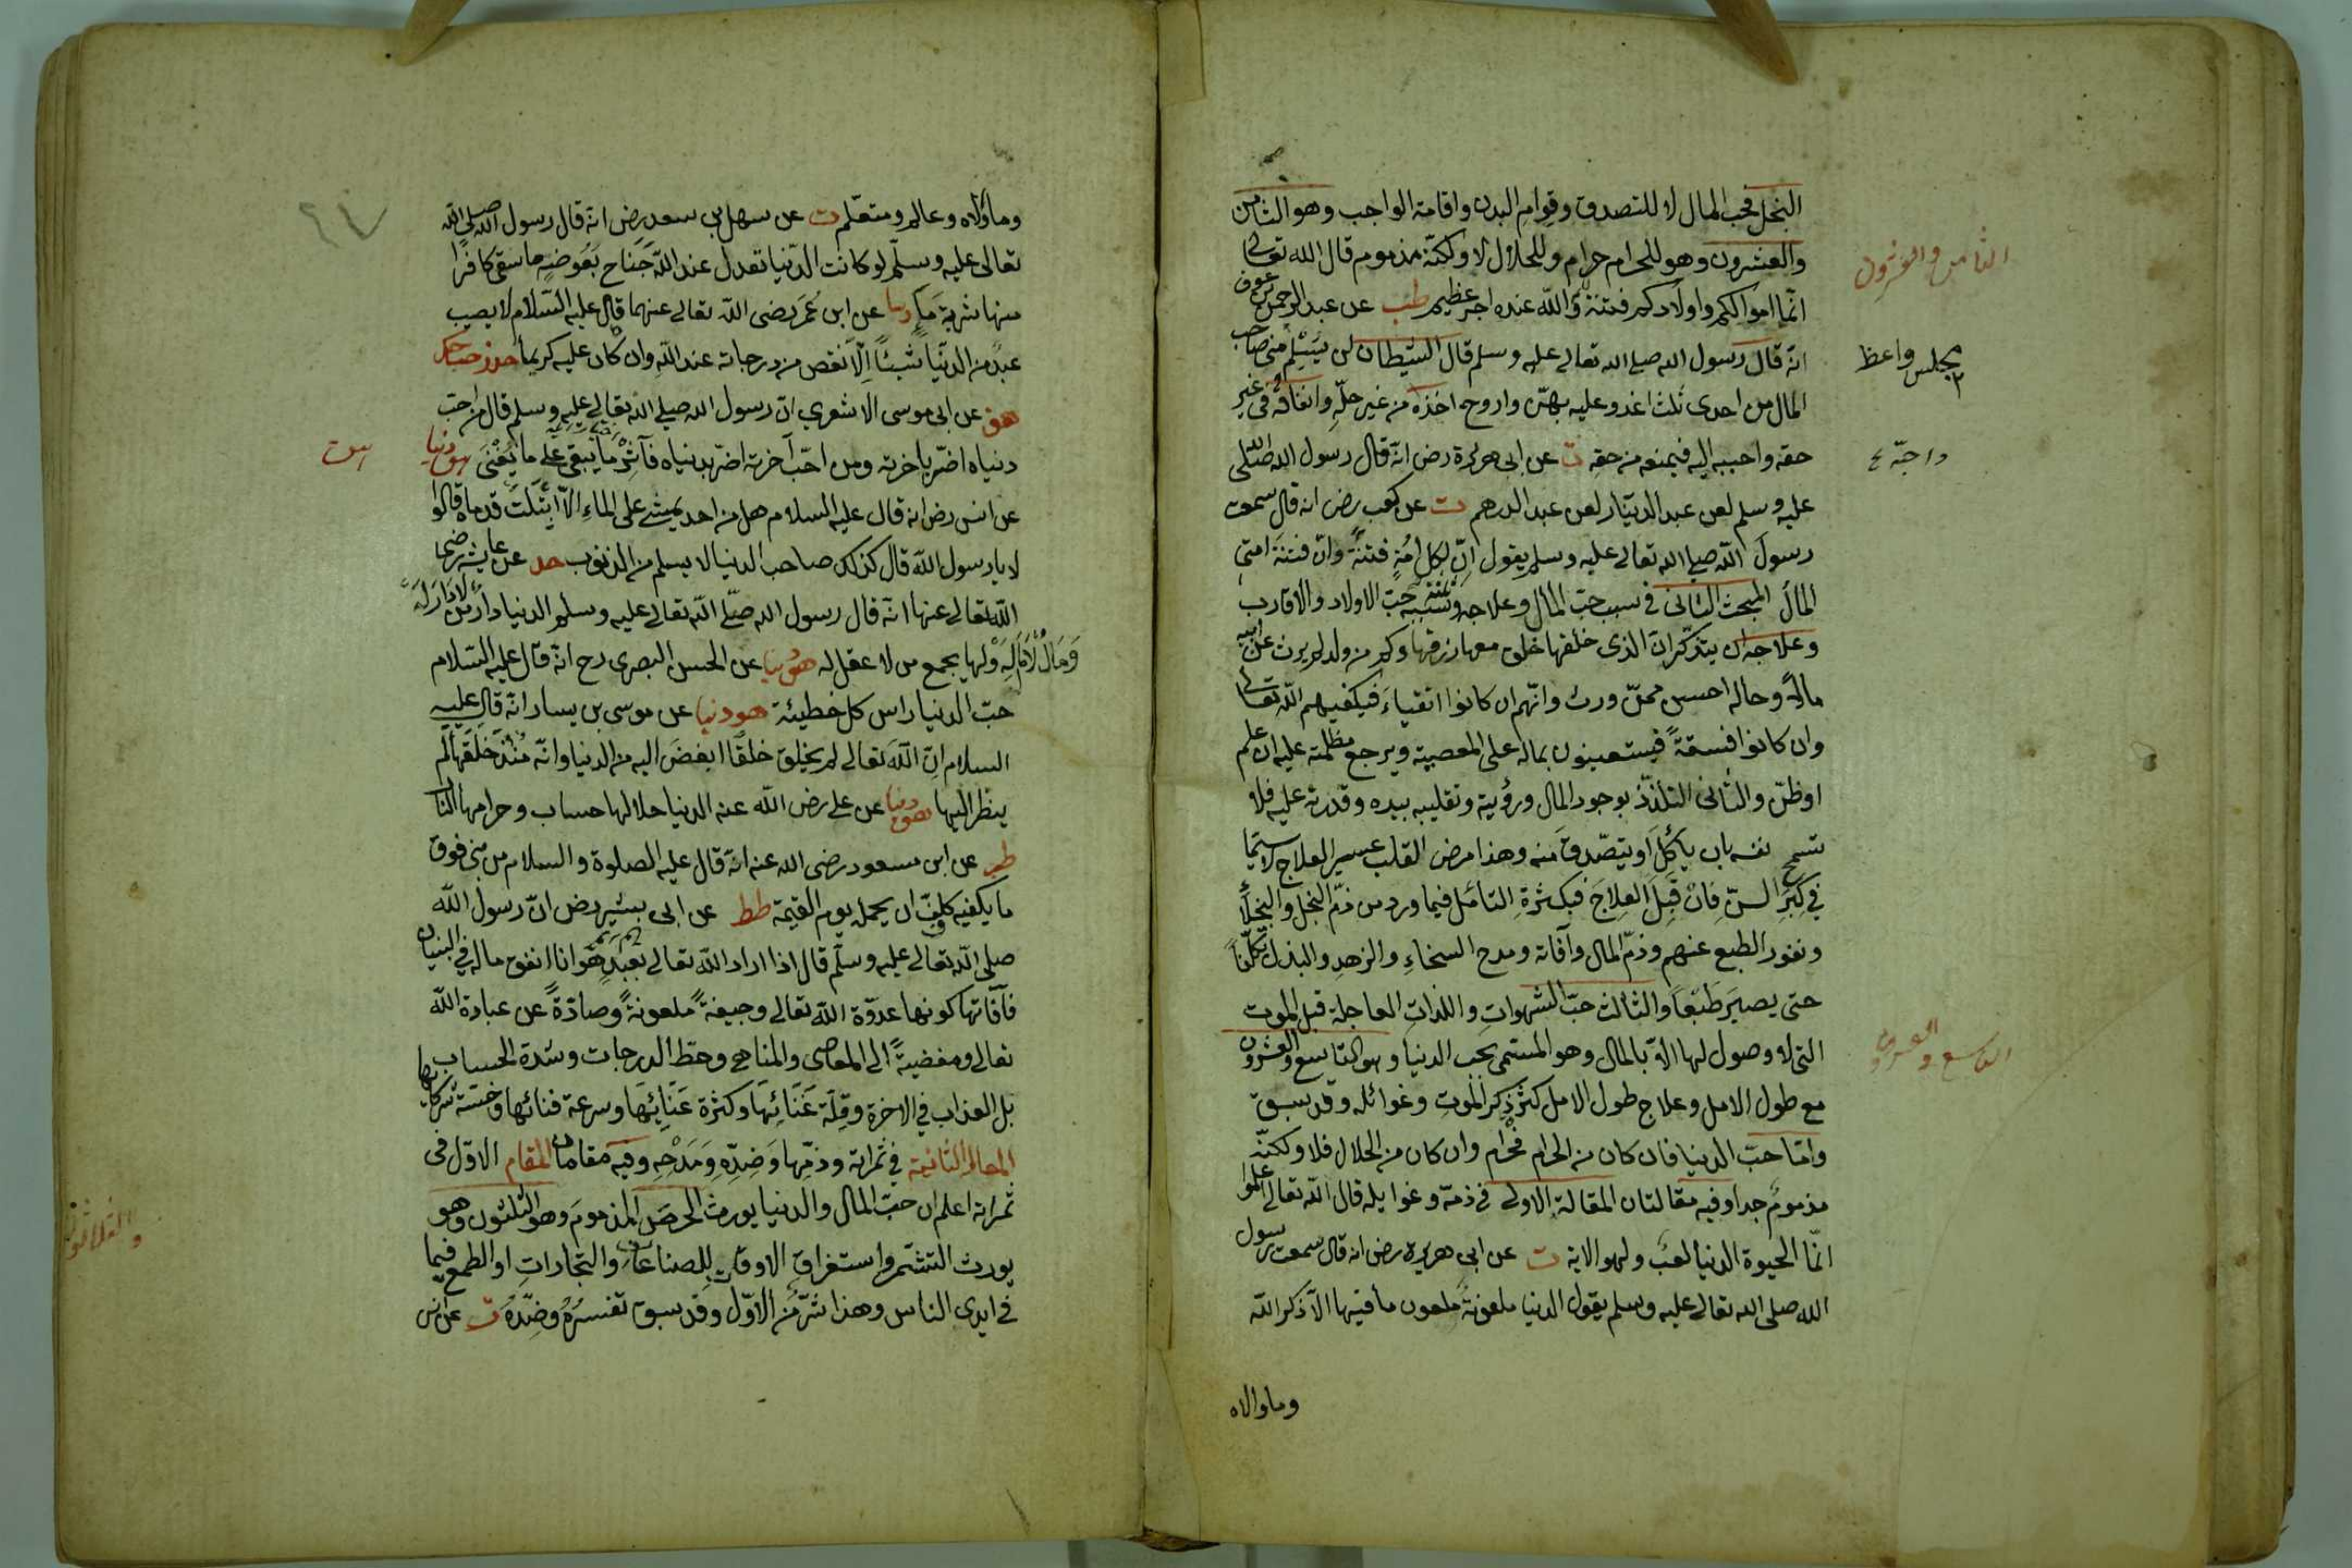 البخل فحب المال لا للتصدق وقوام البدن واقامة الواجب وهو الثامن
والعشرون وهو للحرام حرام وللحلال لا ولكنه مذموم قال الله تعالى
الثامن والعشرون
انما اموالكم واولادكم فتنة والله عنده اجر عظيم طب عن عبد الرحمن بن عوف
انه قال رسول الله صلى الله تعالى عليه وسلم قال الشيطان لن يسلم منى صاحب
مجلس واعظ
المال من احدى ثلث اغدو عليه بهن واروح اخذه من غير حله وانفاقه فى غير
حقه واحببه اليه فيمنعه من حقه ت عن ابى هريرة رض انه قال رسول الله صلى
عليه وسلم لعن عبد الدينار لعن عبد الدرهم ت عن كعب رض انه قال سمعت
رسول الله صلى الله تعالى عليه وسلم يقول ان لكل امة فتنة وان فتنة امتى
المال المبحث الثانى فى سبب حب المال وعلاجه وسببه حب الاولاد والاقارب
وعلاجه ان يتذكر ان الذى خلقها خلق معها رزقها وكم من ولد لم يرث عن ابيه
مالا وحاله احسن ممن ورث وانهم ان كانوا اتقياء فيكفيهم الله تعالى
وان كانوا فسقة فيستعينون بماله على المعصية ويرجع مظلمته عليه ان علم
او ظن والثانى التلذذ بوجود المال ورؤيته وتقليبه بيده وقدرته عليه فلا
تسمح نفسه بان ياكل او يتصدق منه وهذا مرض القلب عسير العلاج لا سيما
فى كبر السن فان قبل العلاج فبكثرة التامل فيما ورد من ذم البخل والبخلاء
ونفور الطبع عنهم وذم المال وآفاته ومدح السخاء والزهد والبذل تكلفا
حتى يصير طبعا والثالث حب الشهوات واللذات العاجلة قبل الموت
التى لا وصول لها الا بالمال وهو المسمى بحب الدنيا وهو التاسع والعشرون
التاسع والعشرون
مع طول الامل وعلاج طول الامل كثر ذكر الموت وغوائله وقد سبق
واما حب الدنيا فان كان من الحرام فحرام وان كان من الحلال فلا ولكنه
مذموم جدا وفيه مقالتان المقالة الاولى فى ذمه وغوايله قال الله تعالى اعلموا
انما الحيوة الدنيا لعب ولهو الاية ت عن ابى هريرة رض انه قال سمعت رسول
الله صلى الله تعالى عليه وسلم يقول الدنيا ملعونة ملعون ما فيها الا ذكر الله
وما والاه
٦٧
وما والاه وعالم ومتعلم ت عن سهل بن سعد رض انه قال رسول الله صلى الله
تعالى عليه وسلم لو كانت الدنيا تعدل عند الله جناح بعوضة ما سقى كافرا
منها شربة ماء دنيا عن ابن عمر رضى الله تعالى عنهما قال عليه السلام لا يصيب
عبد من الدنيا شيئا الا نقص من درجاته عند الله وان كان عليه كريما حد
هق عن ابى موسى الاشعرى ان رسول الله صلى الله تعالى عليه وسلم قال من احب
دنياه اضر باخرته ومن احب آخرته اضر بدنياه فآثر ما يبقى على ما يفنى هق دنيا
عن انس رض انه قال عليه السلام هل من احد يمشى على الماء الا ابتلت قدماه قالوا
لا يا رسول الله قال كذلك صاحب الدنيا لا يسلم من الذنوب حد عن عايشة رضى
الله تعالى عنها انه قال رسول الله صلى الله تعالى عليه وسلم الدنيا دار من لا دار له
ومال من لا مال له ولها يجمع من لا عقل له هق دنيا عن الحسن البصرى رح انه قال عليه السلام
حب الدنيا راس كل خطيئة هق دنيا عن موسى بن يسار انه قال عليه
السلام ان الله تعالى لم يخلق خلقا ابغض اليه من الدنيا وانه منذ خلقها لم
ينظر اليها هق دنيا عن على رض الله عنه الدنيا حلالها حساب وحرامها النار
طب عن ابن مسعود رضى الله عنه انه قال عليه الصلوة والسلام من بنى فوق
ما يكفيه كلف ان يحمله يوم القيمة طط عن ابى بشير رض ان رسول الله
صلى الله تعالى عليه وسلم قال اذا اراد الله تعالى بعبد هوانا انفق ماله فى البنيان
فآفاتها كونها عدوة الله تعالى وجيفة ملعونة وصادة عن عبادة الله
تعالى ومفضية الى المعاصى والمناهى وحط الدرجات وشدة الحساب
بل العذاب فى الاخرة وقلة غنائها وكثرة عنائها وسرعة فنائها وخسة شركائها
المقالة الثانية فى ثمراته وذمها وضده ومدحه وفيه مقامان المقام الاول فى
ثمراته اعلم ان حب المال والدنيا يورث الحرص المذموم وهو الثلثون وهو
والثلاثون
يورث التشمر واستغراق الاوقات للصناعات والتجارات او الطمع فيما
فى ايدى الناس وهذا شر من الاول وقد سبق تفسيره وضده ت عن انس